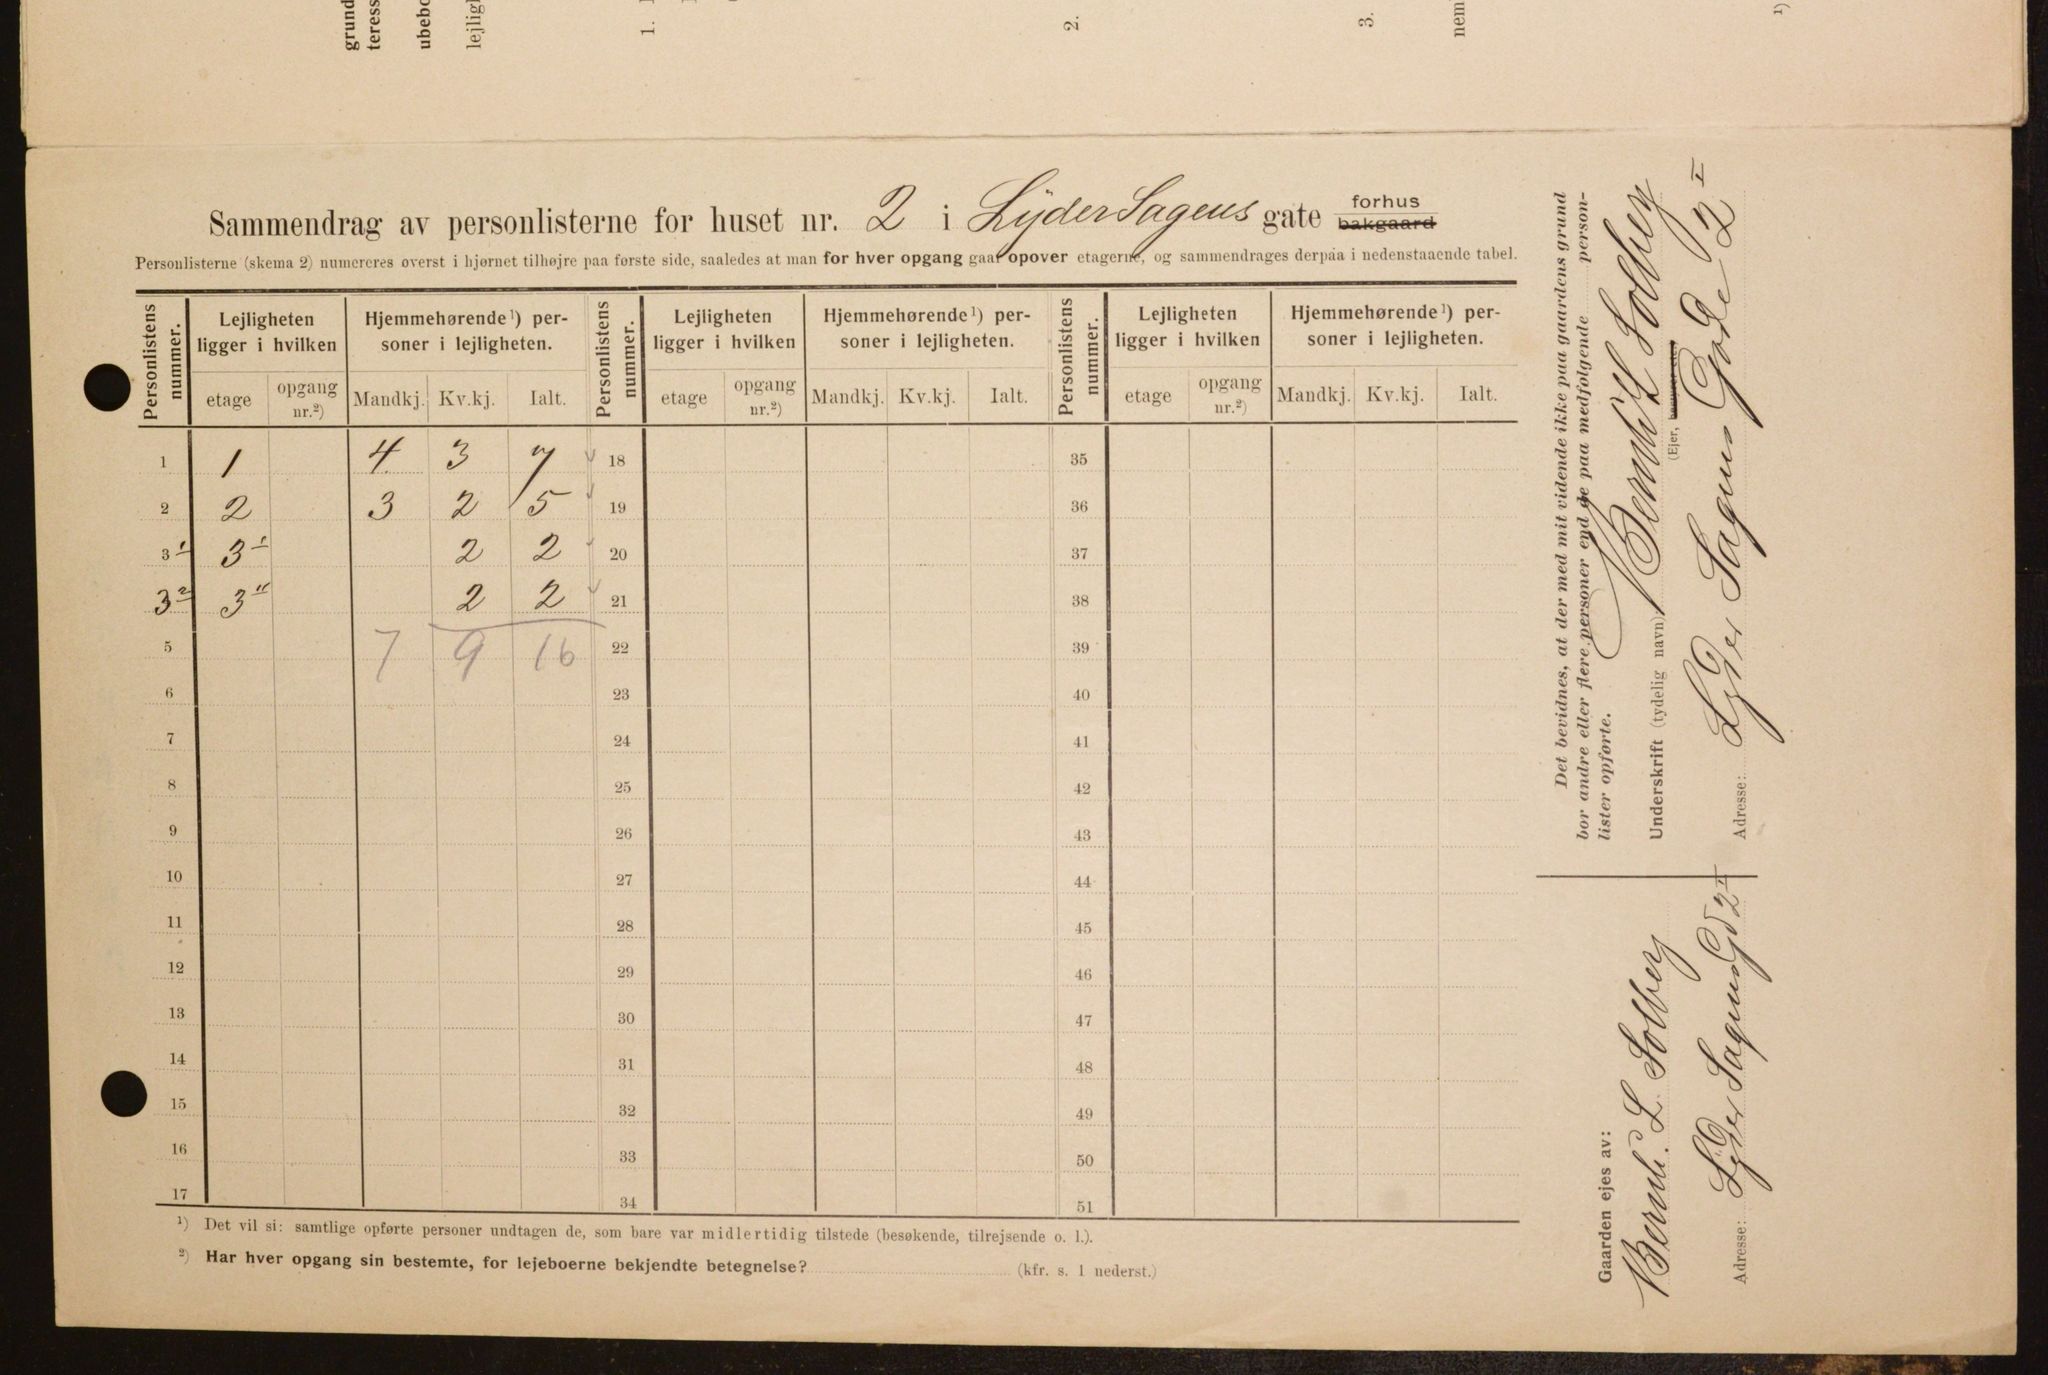 grund
teress
ubebo
lejligh
1.
2.
3.
nem
1)
Sammendrag av personlisterne for huset nr. 2 i Lyder Sagens gate forhus bakgaard
Personlisterne (skema 2) numereres øverst i hjørnet tilhøjre paa første side, saaledes at man for hver opgang gaar opover etagerne, og sammendrages derpaa i nedenstaaende tabel.
Personlistens nummer. Lejligheten ligger i hvilken Hjemmehørende¹) personer i lejligheten. Personlistens nummer. Lejligheten ligger i hvilken Hjemmehørende¹) personer i lejligheten. Personlistens nummer. Lejligheten ligger i hvilken Hjemmehørende¹) personer i lejligheten.
etage opgang nr.²) Mandkj. Kv.kj. Ialt. etage opgang nr.²) Mandkj. Kv.kj. Ialt. etage opgang nr.²) Mandkj. Kv.kj. Ialt.
1 1 4 3 7 18 35
2 2 3 2 5 19 36
3¹ 3¹ 2 2 20 37
3² 3" 2 2 21 38
5 7 9 16 22 39
6 23 40
7 24 41
8 25 42
9 26 43
10 27 44
11 28 45
12 29 46
13 30 47
14 31 48
15 32 49
16 33 50
17 34 51
¹) Det vil si: samtlige opførte personer undtagen de, som bare var midlertidig tilstede (besøkende, tilrejsende o. l.).
²) Har hver opgang sin bestemte, for lejeboerne bekjendte betegnelse? (kfr. s. 1 nederst.)
Det bevidnes, at der med mit vidende ikke paa gaardens grund
bor andre eller flere personer end de paa medfølgende person-
lister opførte.
Underskrift (tydelig navn) Bernh L Solberg
(Ejer,
Adresse: Lyder Sagens Gade 2 I
Gaarden ejes av:
Bernh. L Solberg
Adresse: Lyder Sagens Gd 2 I